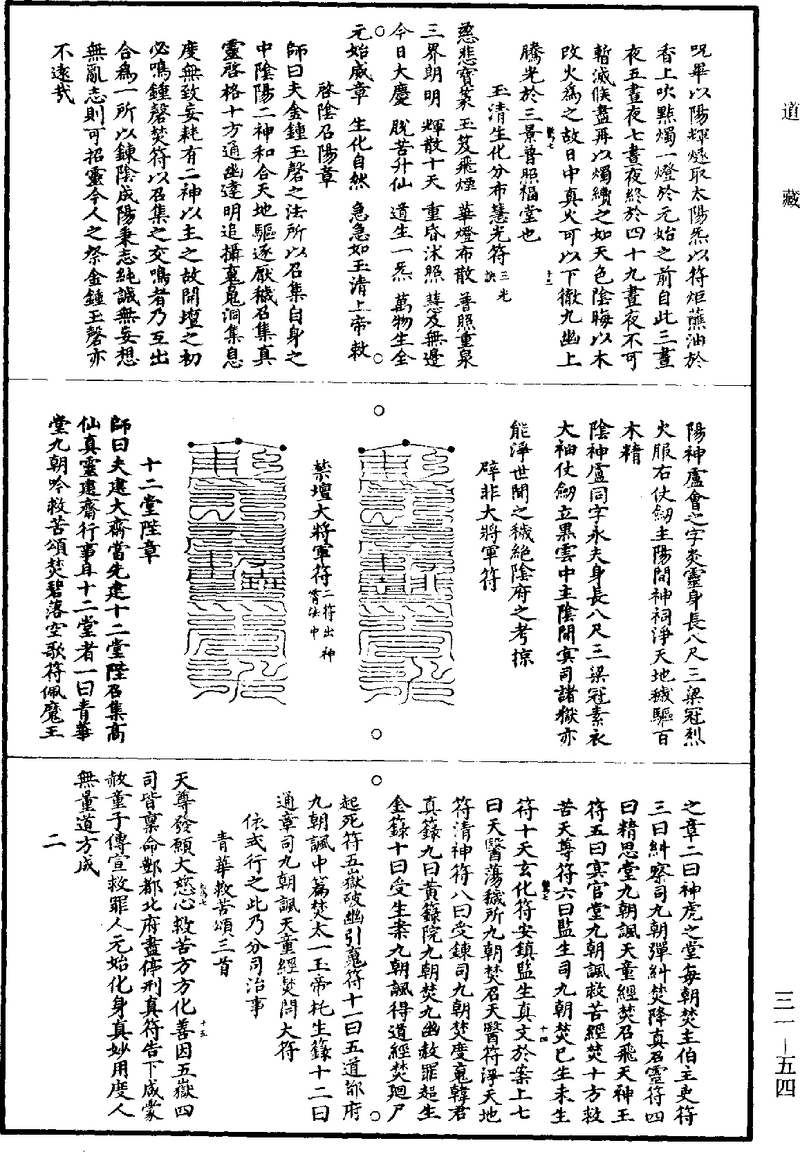 道藏
咒畢以陽輝燧取太陽炁以符炬蘸油於
香上吹點燭一燈於元始之前自此三晝
夜五晝夜七晝夜終於四十九晝夜不可
暫滅候盡再以燭續之如天色陰晦以木
改火為之故日中真火可以下徹九幽上
騰光於三景普照福堂也
玉清生化分布慧光符
慈悲寶篆 玉笈飛煙 華燈布散 普照重泉
三界朗明 輝散十天 重昏沭照 慧及無邊
今日大慶 脫苦升仙 道生一炁 萬物生全
元始威章 生化自然 急急如玉清上帝敕
啓陰召陽章
師曰夫金鍾玉磬之法所以召集自身之
中陰陽二神和合天地驅逐厭穢召集真
靈啓格十方通幽達明追攝䰟鬼洞集息
度無致妄耗有二神以主之故開壇之初
必鳴鍾磬焚符以召集之交鳴者乃互出
合為一所以鍊陰成陽秉志純誠無妄想
無亂志則可招靈今人之祭金鍾玉磬亦
不遠哉
陽神盧會之字炎靈身長八尺三梁冠烈
火服右仗劒主陽間神祠淨天地穢驅百
木精
陰神盧同字永夫身長八尺二梁冠素衣
大袖仗劒立黑雲中主陰間寞司諸獄亦
能淨世間之穢絕陰府之考掠
辟非大將軍符
禁壇大將軍符
十二堂陛章
師曰夫建大齋當先建十二堂陛召集高
仙真靈建齋行事耳十二堂者一曰青華
堂九朝吟救苦頌焚碧落空歌符佩魔王
之章二曰神虎之堂每朝焚主伯主吏符
三曰糾察司九朝彈糾焚降真召靈符四
曰精思堂九朝諷天童經焚召飛天神王
符五曰寞官堂九朝諷救苦經焚十方救
苦天尊符六曰監生司九朝焚已生未生
符十天玄化符安鎮監生真文於案上七
曰天醫蕩穢所九朝焚召天醫符淨天地
符清神符八曰受鍊司九朝焚度䰟韓君
真籙九曰黃籙院九朝焚九幽赦罪超生
金籙十曰受生案九朝諷得道經焚廻尸
起死符五嶽破幽引䰟符十一曰五道都府
九朝諷中篇焚太一玉帝托生籙十二曰
通章司九朝諷天童經焚問大符
依式行之此乃分司治事
青華救苦頌三首
天尊發願大慈心救苦方方化善因五嶽四
司皆稟命酆都北府盡停刑真符告下咸蒙
赦童子傳宣救罪人元始化身真妙用度人
無量道方成
二
三一－五四